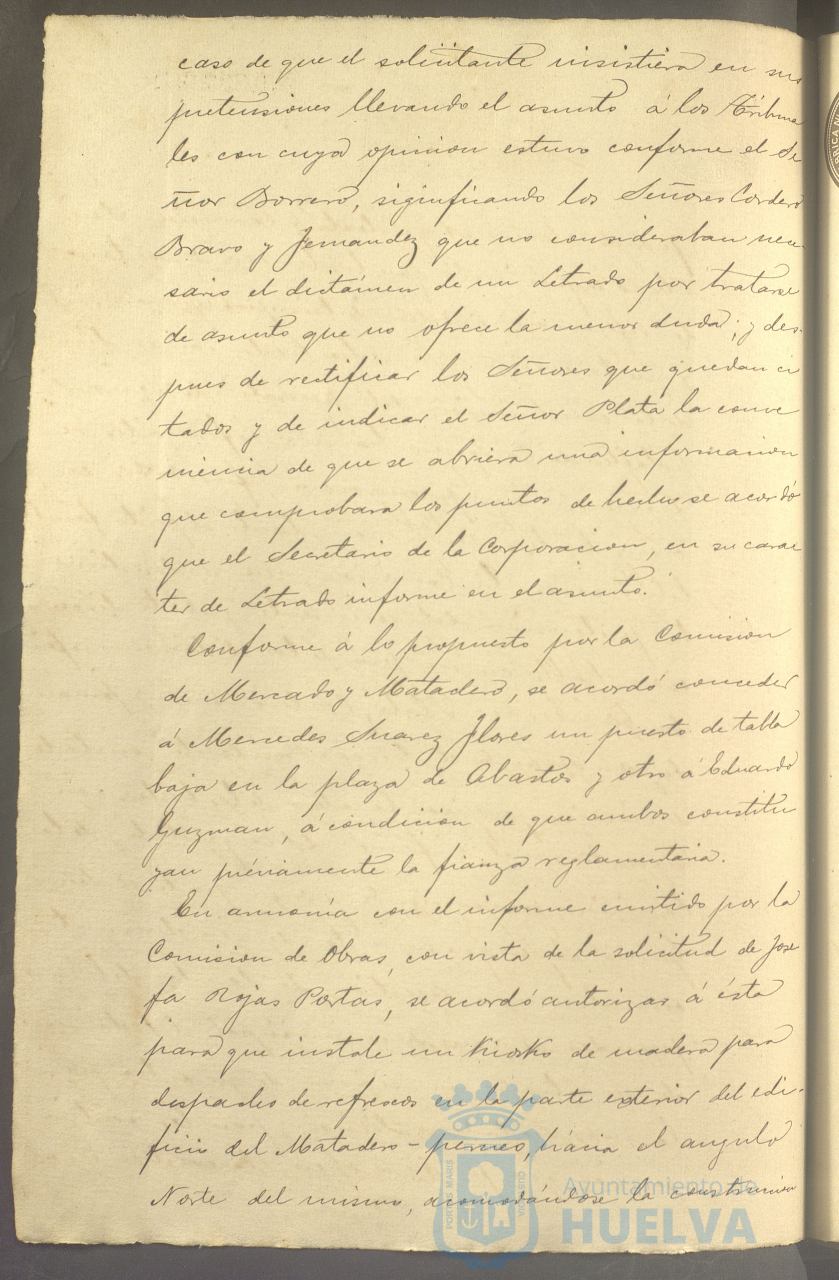 caso de que el solicitante insistiera en sus
pretensiones llevando el asunto á los Tribuna
les con cuya opinion estuvo conforme el Se
ñor Borrero, significando los Señores Cordero
Bravo y Jernandez que no consideraban nece
sario el dictámen de un Letrado por tratarse
de asunto que no ofrece la menor duda; y des-
pues de rectificar los Señores que quedan ci
tados y de indicar el Señor Plata la conve
niencia de que se abriera una informacion
que comprobara los puntos de hecho se acordó
que el Secretario de la Corporacion, en su carac
ter de Letrado informe en el asunto.
Conforme á lo propuesto por la Comision
de Mercado y Matadero, se acordó conceder
á Mercedes Suarez Flores un puesto de tabla
baja en la plaza de Abastos y otro á Eduardo
Guzman, á condición de que ambos constitu
yan préviamente la fianza reglamentaria.
En armonía con el informe emitido por la
Comision de Obras, con vista de la solicitud de Jose
fa Rojas Portas, se acordó autorizar á ésta
para que instale un Kiosko de madera para
despacho de refrescos en la parte exterior del edi-
ficio del Matadero-perneo, hácia el angulo
Norte del mismo, acomodándose la construccion
PORTUS MARIS
ET TERRAE CUSTODIA
Ayuntamiento de
HUELVA